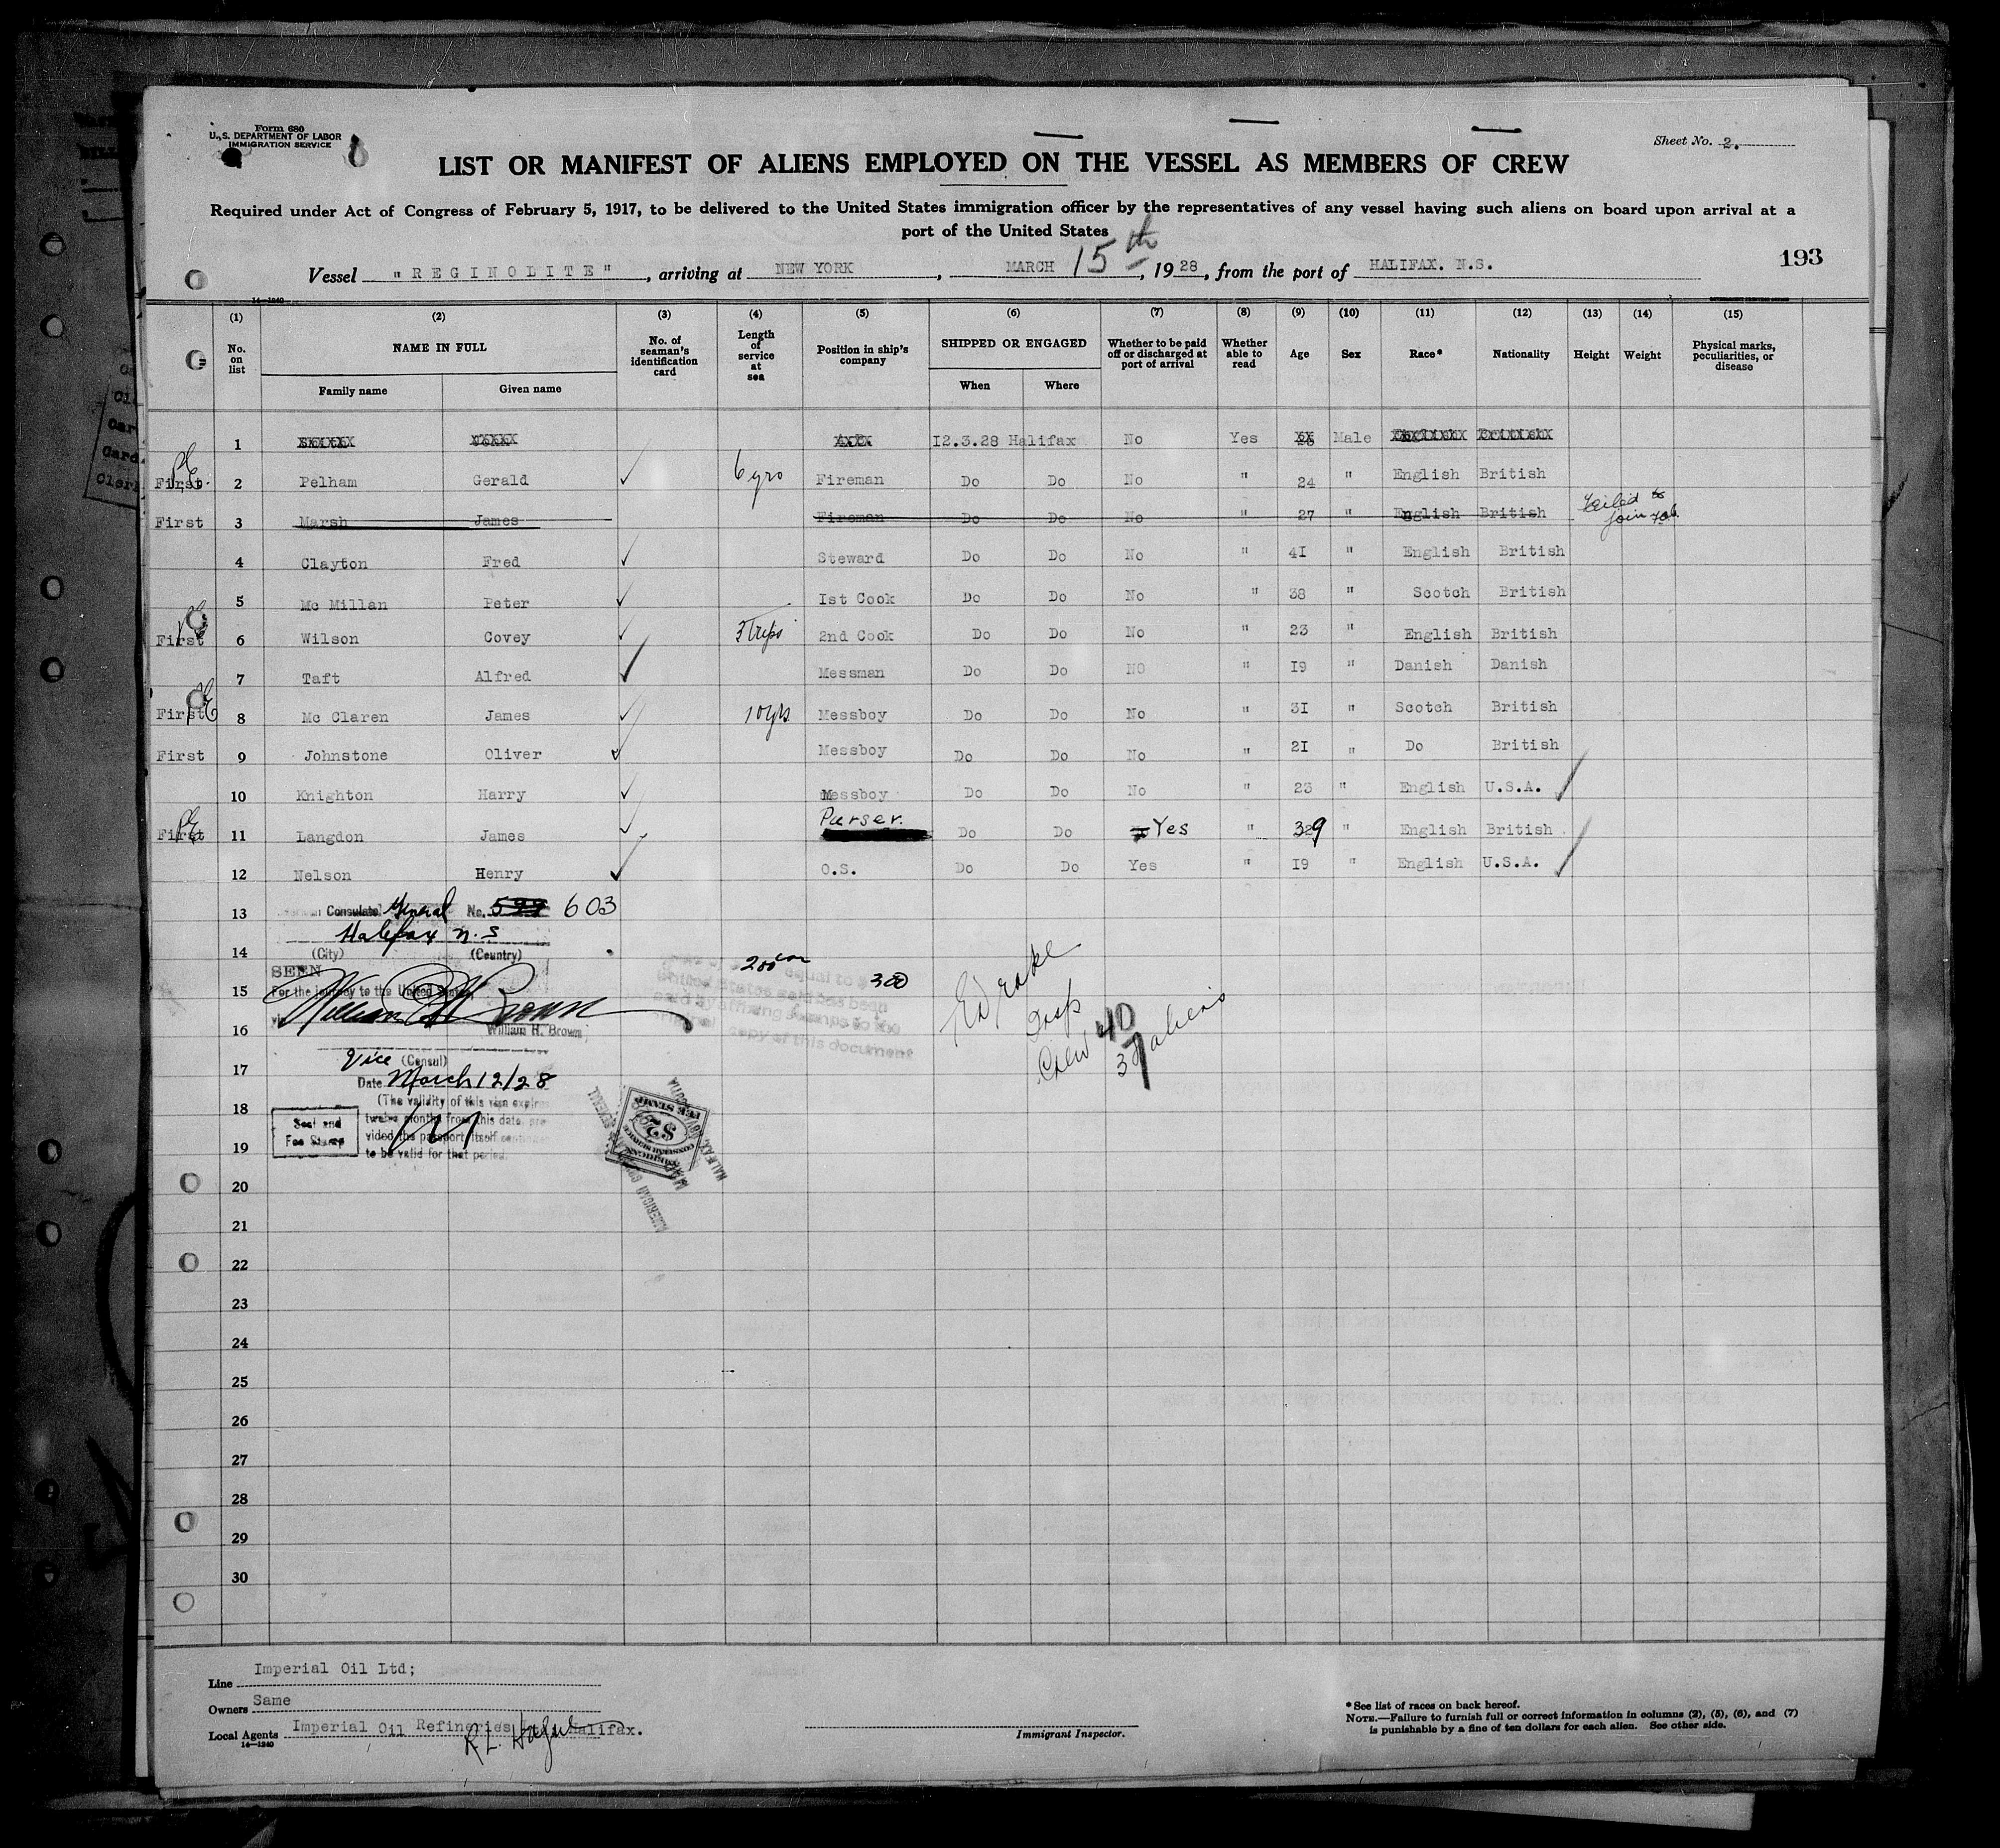 Form 680
U. S. DEPARTMENT OF LABOR
IMMIGRATION SERVICE
Sheet No. 2.
LIST OR MANIFEST OF ALIENS EMPLOYED ON THE VESSEL AS MEMBERS OF CREW
Required under Act of Congress of February 5, 1917, to be delivered to the United States immigration officer by the representatives of any vessel having such aliens on board upon arrival at a
port of the United States
193
Vessel "REGINOLITE", arriving at NEW YORK, MARCH 15th, 1928, from the port of HALIFAX. N.S.
14—1240
(1) (2) (3) (4) (5) (6) (7) (8) (9) (10) (11) (12) (13) (14) (15)
No. on list NAME IN FULL No. of seaman's identification card Length of service at sea Position in ship's company SHIPPED OR ENGAGED Whether to be paid off or discharged at port of arrival Whether able to read Age Sex Race* Nationality Height Weight Physical marks, peculiarities, or disease
Family name Given name When Where
1 12.3.28 Halifax No Yes Male
First 2 Pelham Gerald 6 yrs Fireman Do Do No " 24 " English British
First 3 Marsh James Fireman Do Do No " 27 " English British Failed to join
4 Clayton Fred Steward Do Do No " 41 " English British
5 Mc Millan Peter 1st Cook Do Do No " 38 " Scotch British
First 6 Wilson Covey 3 trips 2nd Cook Do Do No " 23 " English British
7 Taft Alfred Messman Do Do NO " 19 " Danish Danish
First 8 Mc Claren James 10 yrs Messboy Do Do No " 31 " Scotch British
First 9 Johnstone Oliver Messboy Do Do No " 21 " Do British
10 Knighton Harry Messboy Do Do No " 23 " English U.S.A.
First 11 Langdon James Purser. Do Do Yes " 39 " English British
12 Nelson Henry O.S. Do Do Yes " 19 " English U.S.A.
13 Consulate General No. 599 603
Halifax N.S
14 (City) (Country)
SEEN
15 For the journey to the United States,
via William H. Brown
16 William H. Brown,
Vice (Consul)
17 Date March 12/28
(The validity of this visa expires
18 twelve months from this date, pro-
vided the passport itself continues
19 to be valid for that period.
Seal and
Fee Stamp
equal to
United States gold has been
paid by affixing stamps to the
copy of this document
300
Crew 40
aliens
$2
FEE STAMP
AMERICAN CONSULATE GENERAL
HALIFAX, NOVA SCOTIA
20
21
22
23
24
25
26
27
28
29
30
Line Imperial Oil Ltd;
Owners Same
Local Agents Imperial Oil Refineries Halifax.
14—1240
Immigrant Inspector.
*See list of races on back hereof.
NOTE.—Failure to furnish full or correct information in columns (2), (5), (6), and (7)
is punishable by a fine of ten dollars for each alien. See other side.